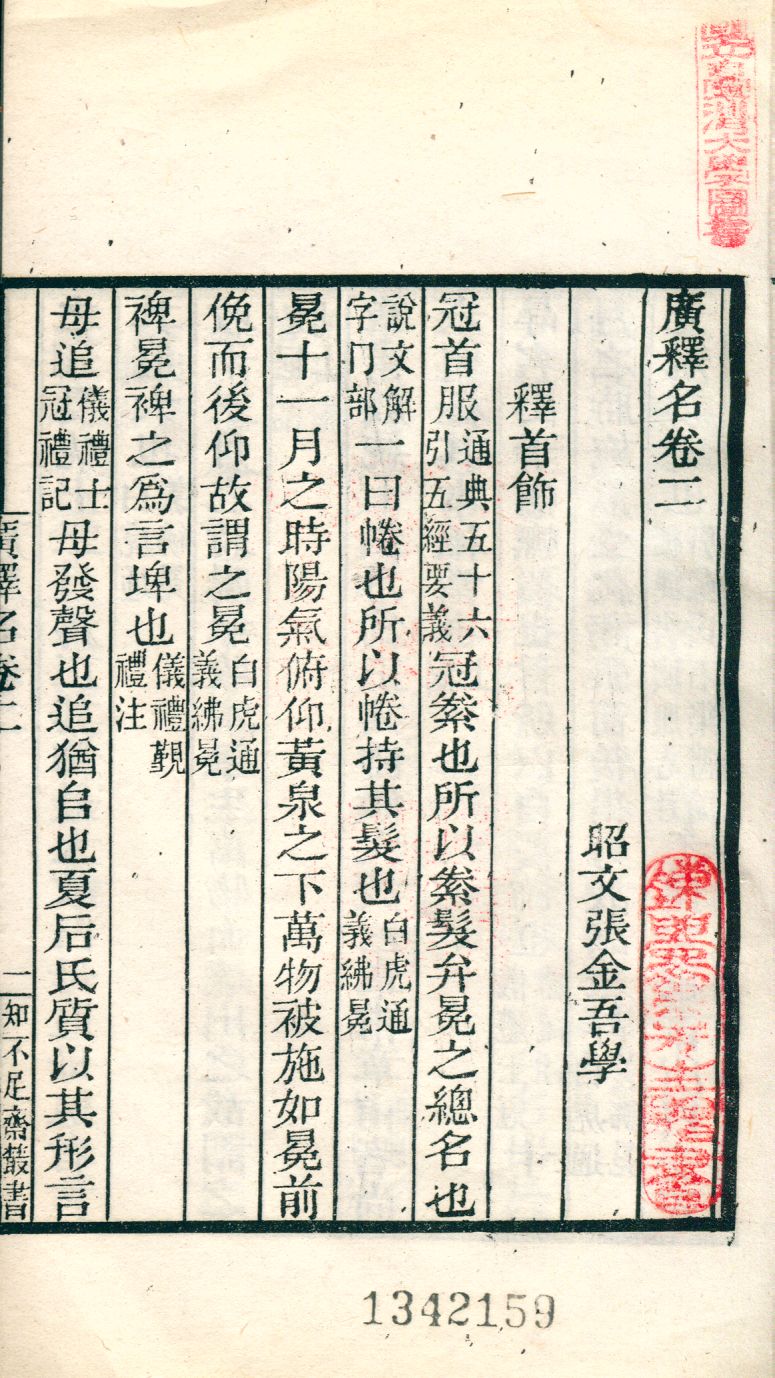 廣釋名卷二
昭文張金吾學
釋首飾
冠首服通典五十六引五經要義冠絭也所以絭髮弁冕之總名也
說文解字冂部一曰帣也所以帣持其髮也白虎通義紼冕
冕十一月之時陽氣俯仰黃泉之下萬物被施如冕前
俛而後仰故謂之冕白虎通義紼冕
裨冕裨之爲言埤也儀禮覲禮注
毋追儀禮士冠禮記毋發聲也追猶𠂤也夏后氏質以其形言
廣釋名卷二
一
知不足齋叢書
1342159